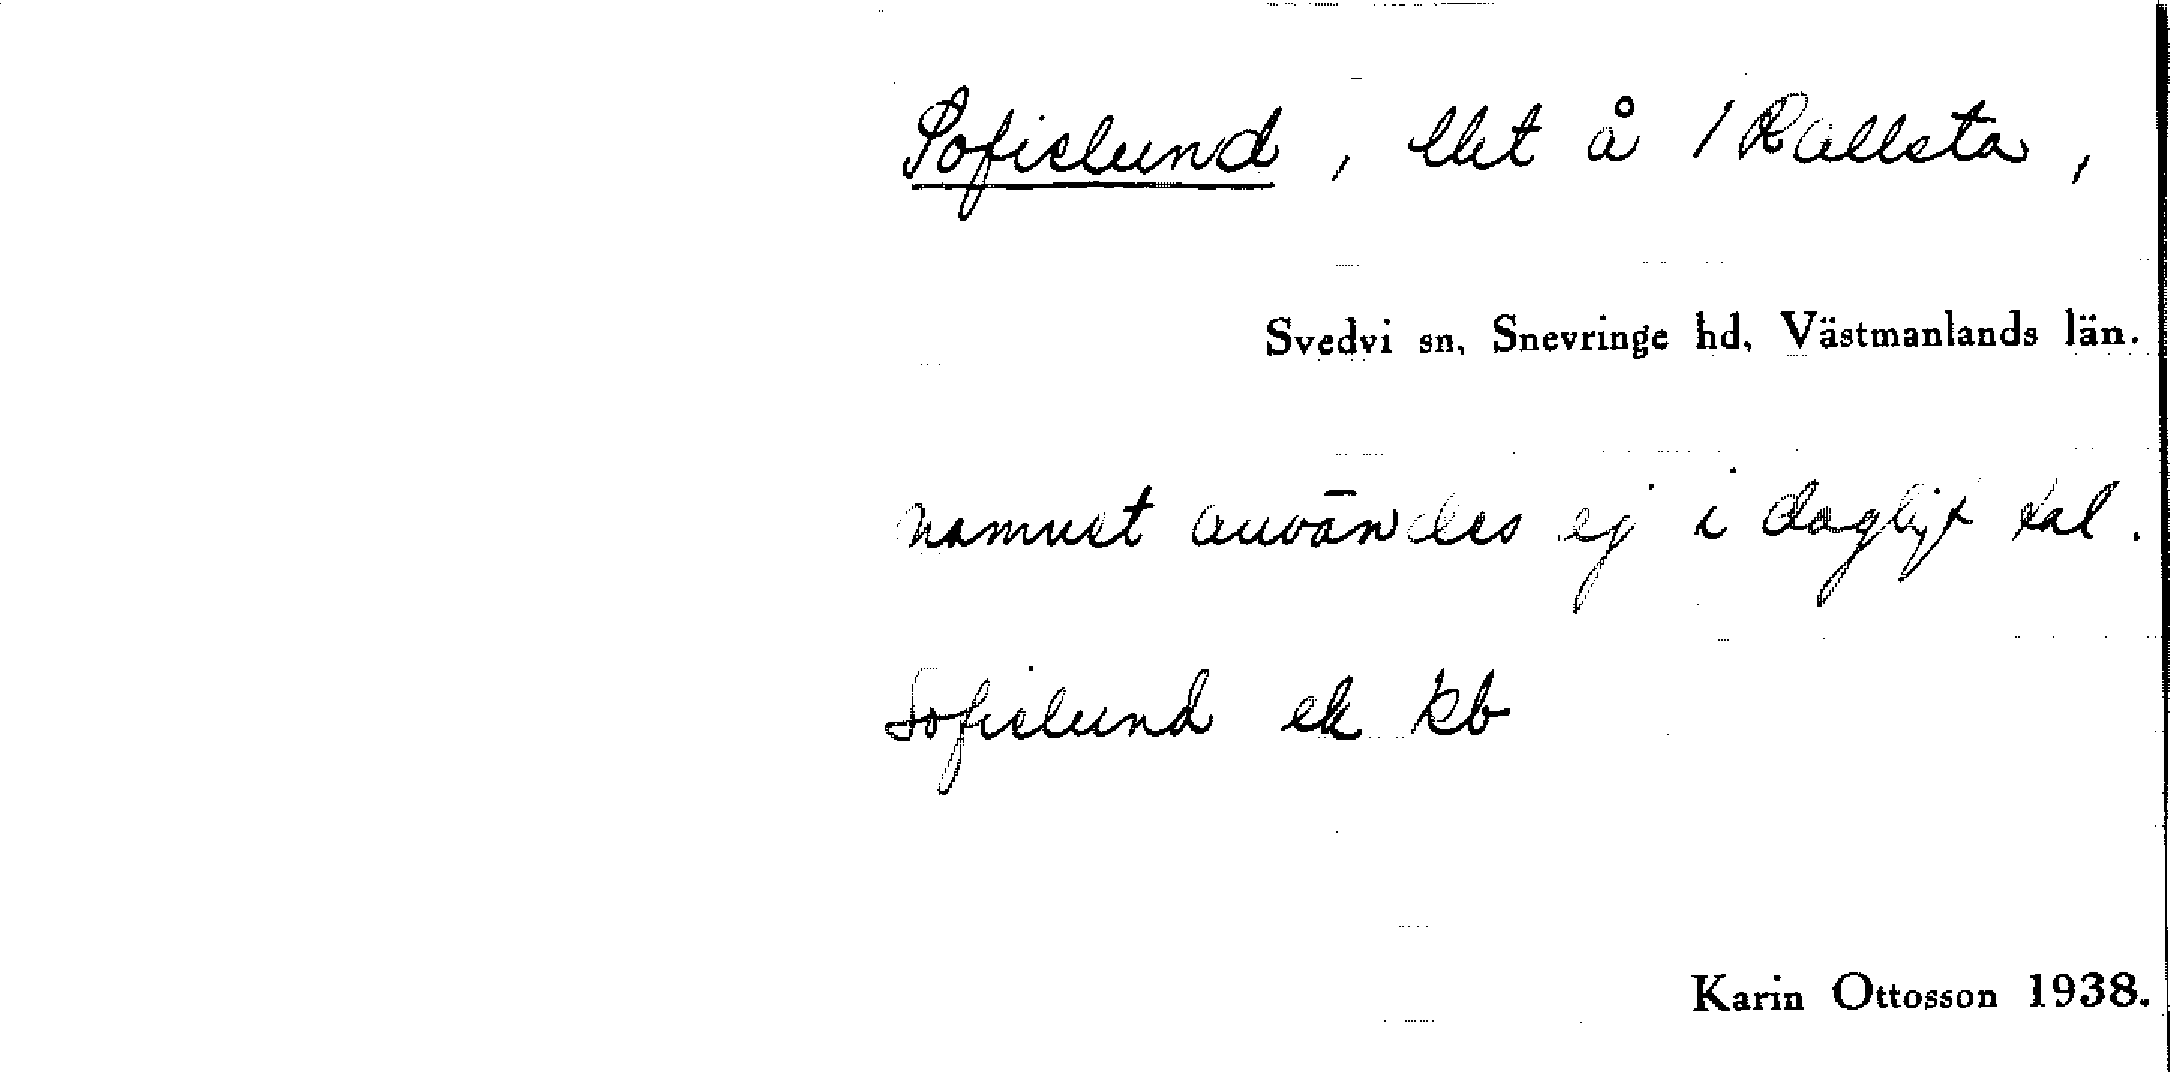 Sofielund, lht å 1 Rallsta,
Svedvi sn, Snevringe hd, Västmanlands län.
namnet användes ej i dagligt tal.
Sofielund ek kb
Karin Ottosson 1938.